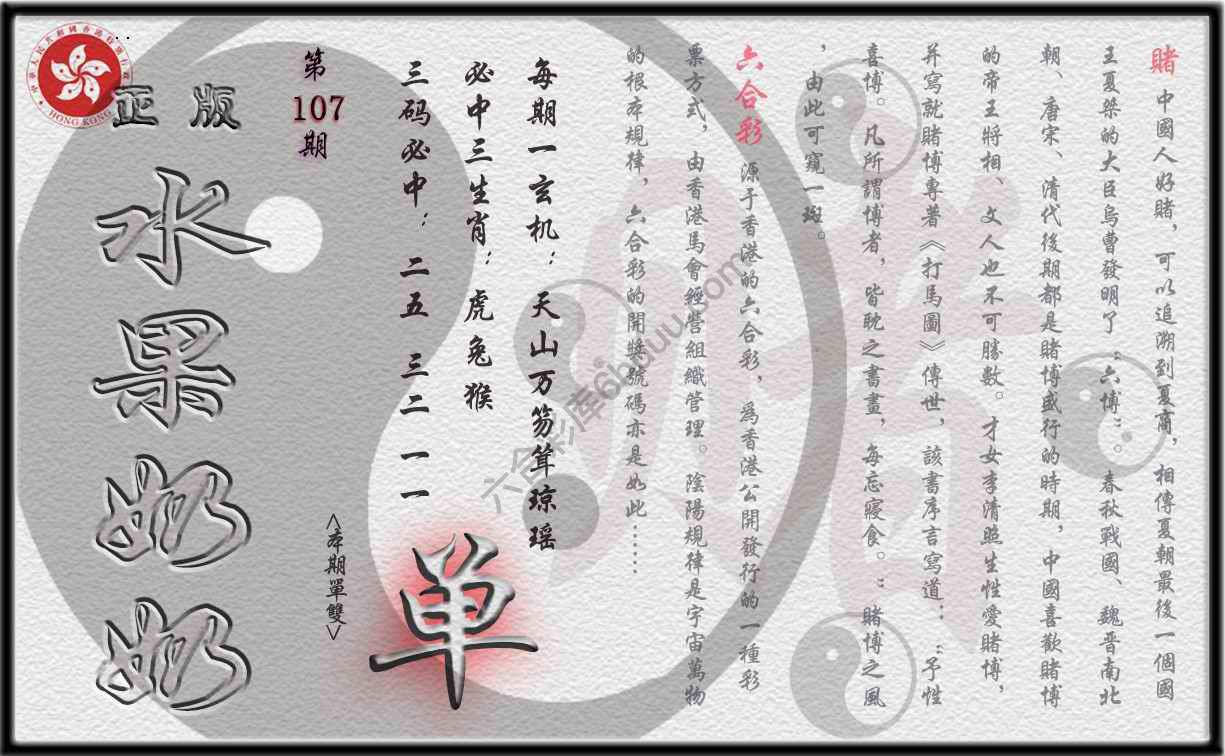 賭 中國人好賭，可以追溯到夏商，相傳夏朝最後一個國
王夏桀的大臣烏曹發明了“六博”。春秋戰國、魏晋南北
朝、唐宋、清代後期都是賭博盛行的時期，中國喜歡賭博
的帝王將相、文人也不可勝數。才女李清照生性愛賭博，
并寫就賭博專著《打馬圖》傳世，該書序言寫道：“予性
喜博。凡所謂博者，皆耽之晝，每忘寢食。”賭博之風
，由此可窺一斑。
六合彩 源于香港的六合彩，爲香港公開發行的一種彩
票方式，由香港馬會經營組織管理。陰陽規律是宇宙萬物
的根本規律，六合彩的開獎號碼亦是如此……
每期一玄机：天山万笏耸琼瑶
必中三生肖：虎兔猴
三码必中：二五 三二 一一
第
107
期
<本期單雙>
单
正版
水果奶奶
HONG KONG
六合彩库6hduu.com